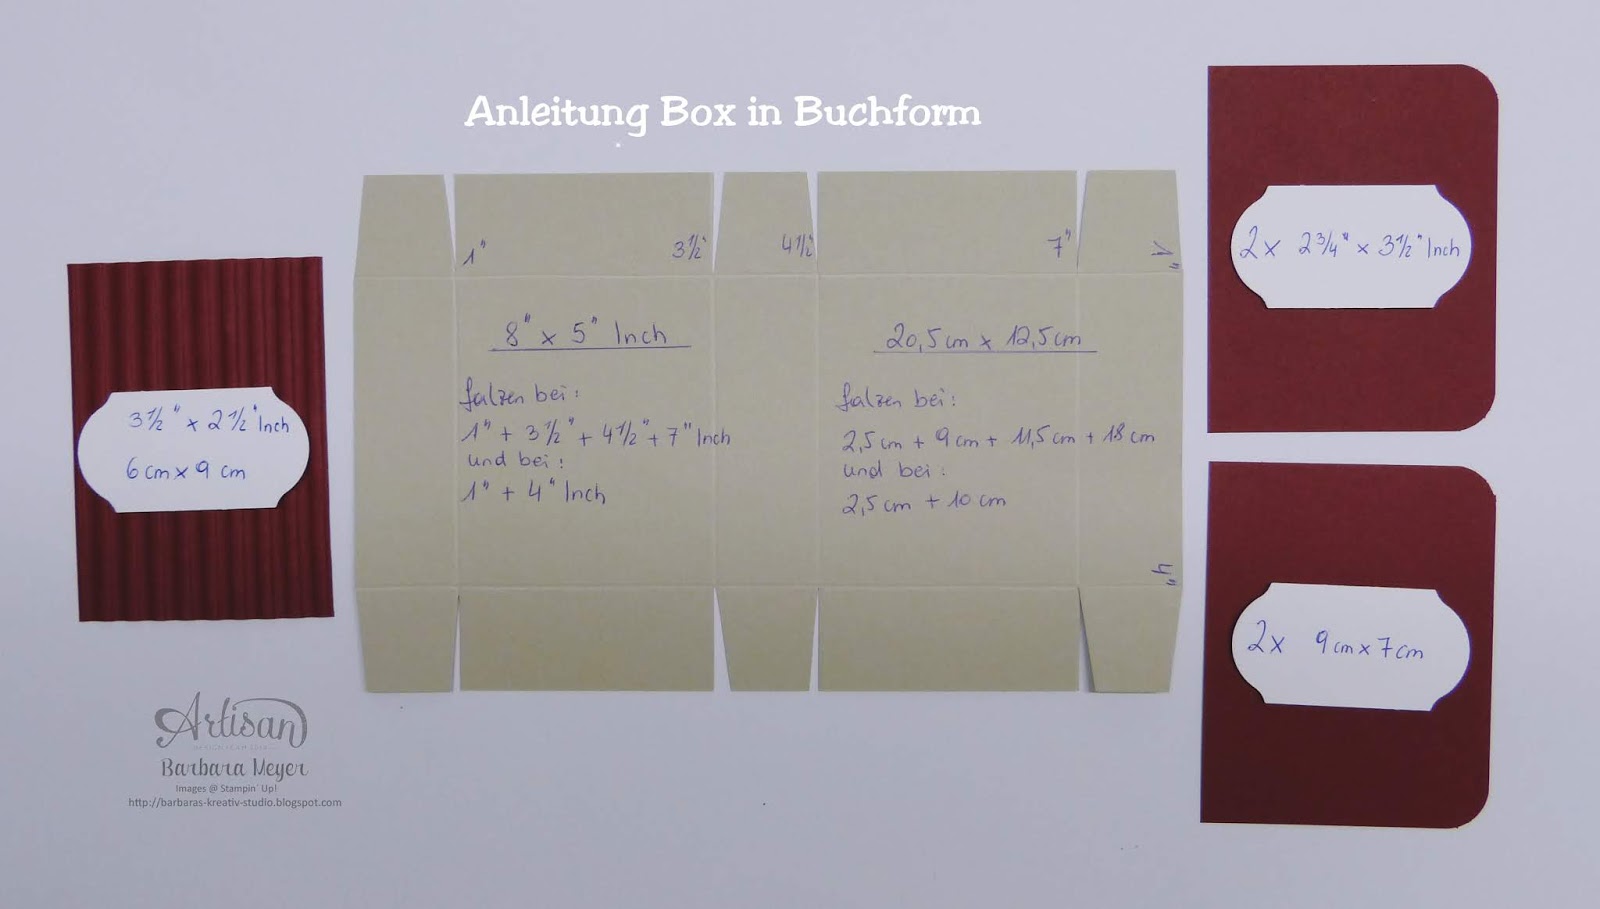 Anleitung Box in Buchform
3 1/2" x 2 1/2" Inch
6 cm x 9 cm
1"
3 1/2"
4 1/2"
7"
1"
8" x 5" Inch
falzen bei:
1" + 3 1/2" + 4 1/2" + 7" Inch
und bei:
1" + 4" Inch
20,5 cm x 12,5 cm
falzen bei:
2,5 cm + 9 cm + 11,5 cm + 18 cm
und bei:
2,5 cm + 10 cm
4"
2 x 2 3/4" x 3 1/2" Inch
2 x 9 cm x 7 cm
Artisan
Barbara Meyer
Images @ Stampin´ Up!
http://barbaras-kreativ-studio.blogspot.com